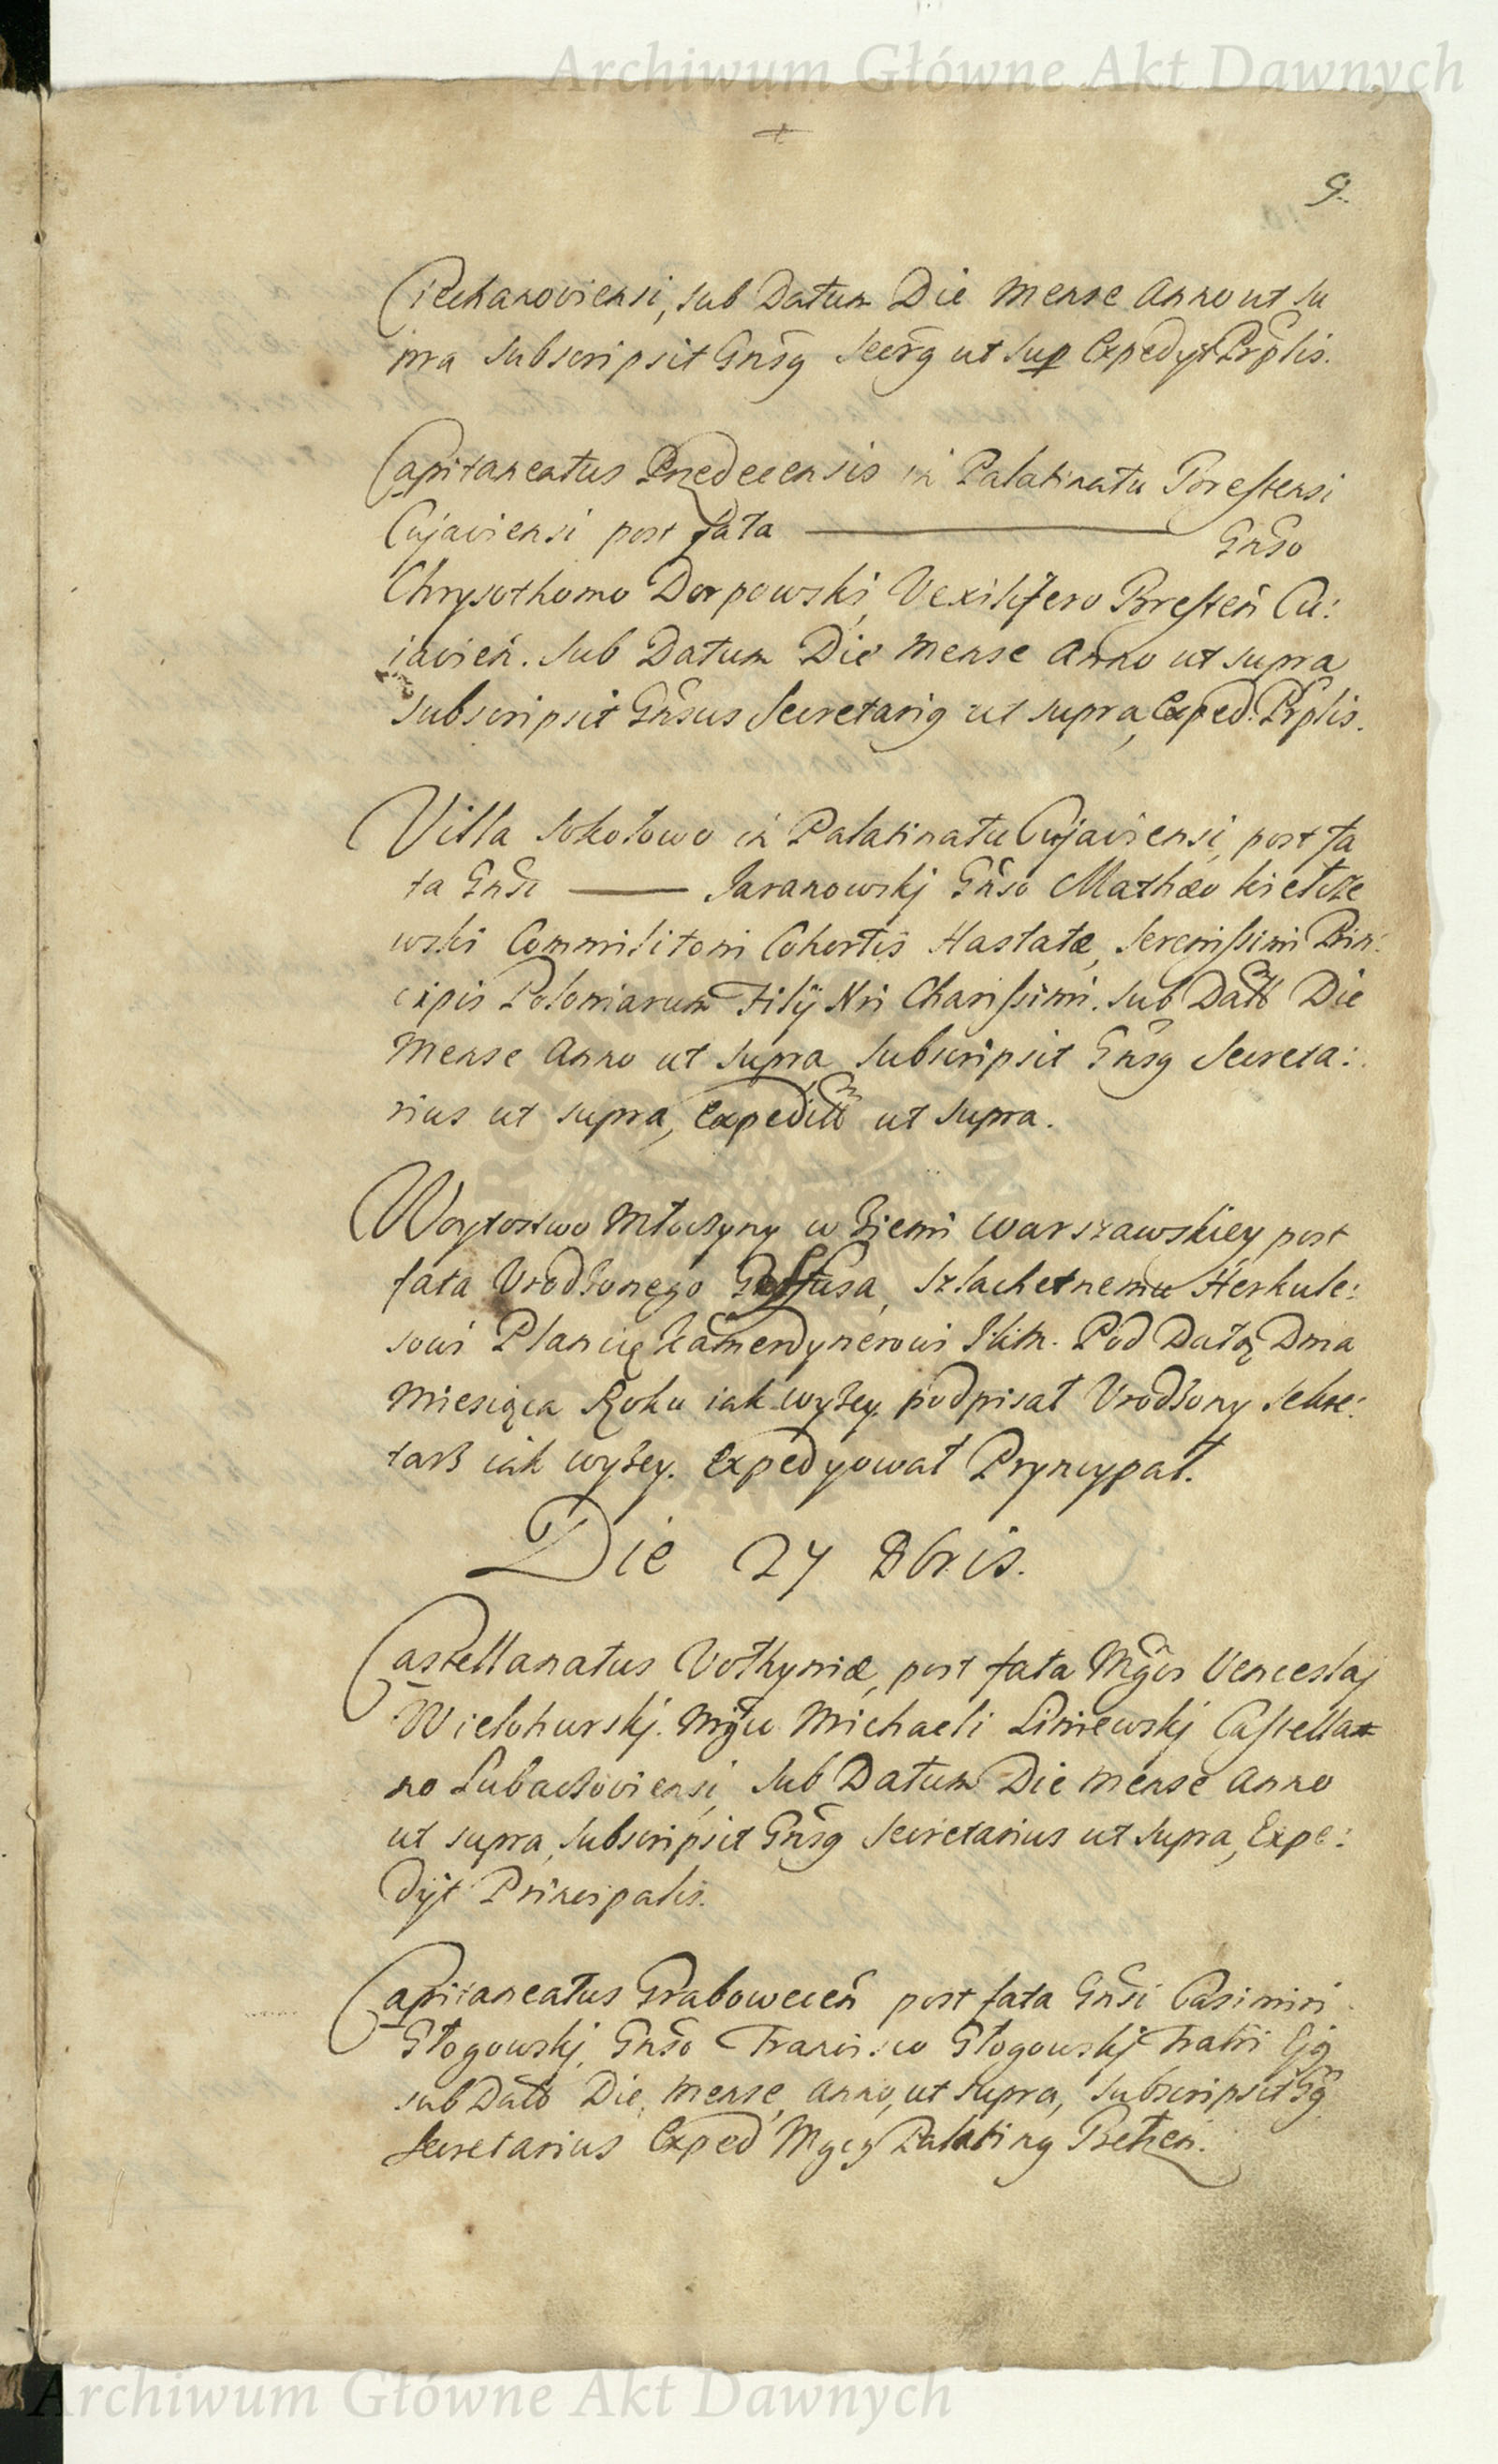 Archiwum Główne Akt Dawnych
9.
Ciechanoviensi, sub Datum Die Mense Anno ut su
pra subscripsit Gnsg Secrg ut sup Expedyt Prplis.
Capitaneatus Przedecensis in Palatinatu Brestensi
Cujaviensi post fata ——— Gnso
Chrysothomo Dorpowski, Vexilifero Bresteń Cu:
javień. sub Datum Die Mense Anno ut supra
subscripsit Gnsus Secretarig ut supra, Exped: Prplis.
Villa Sokołowo in Palatinatu Cujaviensi, post fa
ta Gnsi ——— Jaranowskj Gnso Mathæo Kiełcze
wski Commilitoni Cohortis Hastatæ, Serenissimi Prin:
cipis Poloniarum Filij Nri Charissimi. sub Datt Die
Mense Anno ut supra, subscripsit Gnsg Secreta:
rius ut supra, Expeditt ut supra.
Woytostwo Młociyny w Ziemi Warszawskiey post
fata Vrodzonego, Szlachetnemu Herkule:
sowi Plancię Kamerdynerowi JKM. Pod Datą Dnia
Miesiąca Roku iak wyżey. podpisał Vrodzony Sekre:
tarz iak wyżey. Expedyował Pryncypał.
Die 27 8bris.
Castellanatus Vołhyniæ, post fata Mgci Venceslaj
Wielohurskj. Mgco Michaeli Liniewskj Castella
no Lubaczoviensi, sub Datum Die Mense Anno
ut supra, subscripsit Gnsg Secretarius ut supra, Expe:
dijt Principalis.
Capitaneatus Graboweceń post fata Gnsi Casimiri
Głogowskj, Gnso Francisco Głogowskj Fratri Ejg
sub Datt Die, Mense, Anno, ut supra, subscripsit Gg
Secretarius Exped Mgcg Palating Bełzeń.
Archiwum Główne Akt Dawnych